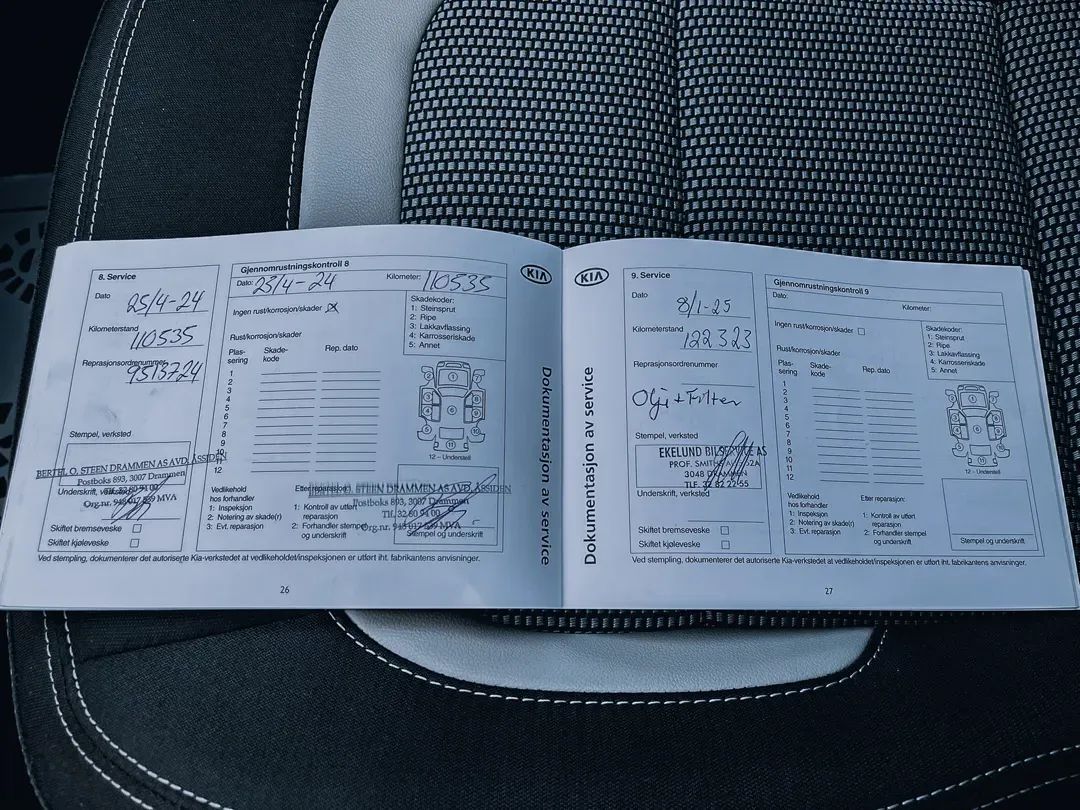 8. Service
Dato 25/4-24
Kilometerstand 110535
Reprasjonsordrenummer 9513724
Stempel, verksted
BERTEL O. STEEN DRAMMEN AS AVD. ÅSSIDEN
Postboks 893, 3007 Drammen
Tlf. 32 80 94 00
Underskrift, verksted
Org.nr. 948 017 539 MVA
Skiftet bremseveske
Skiftet kjøleveske
Gjennomrustningskontroll 8
Dato: 23/4-24 Kilometer: 110535
Ingen rust/korrosjon/skader X
Rust/korrosjon/skader
Plas-sering Skade-kode Rep. dato
1
2
3
4
5
6
7
8
9
10
11
12
Skadekoder:
1: Steinsprut
2: Ripe
3: Lakkavflassing
4: Karrosseriskade
5: Annet
12 – Understell
Vedlikehold
hos forhandler
1: Inspeksjon
2: Notering av skade(r)
3: Evt. reparasjon
Etter reparasjon:
1: Kontroll av utført
reparasjon
2: Forhandler stempel
BERTEL O. STEEN DRAMMEN AS AVD. ÅSSIDEN
Postboks 893, 3007 Drammen
Tlf. 32 80 94 00
Org.nr. 948 017 539 MVA
Stempel og underskrift
Ved stempling, dokumenterer det autoriserte Kia-verkstedet at vedlikeholdet/inspeksjonen er utført iht. fabrikantens anvisninger.
26
KIA
Dokumentasjon av service
KIA
Dokumentasjon av service
9. Service
Dato 8/1-25
Kilometerstand 122323
Reprasjonsordrenummer
Olje + Filter
Stempel, verksted
EKELUND BILSERVICE AS
PROF. SMITHS AVE 52A
3048 DRAMMEN
TLF. 32 82 22 55
Underskrift, verksted
Skiftet bremseveske
Skiftet kjøleveske
Gjennomrustningskontroll 9
Dato: Kilometer:
Ingen rust/korrosjon/skader
Rust/korrosjon/skader
Plas-sering Skade-kode Rep. dato
1
2
3
4
5
6
7
8
9
10
11
12
Skadekoder:
1: Steinsprut
2: Ripe
3: Lakkavflassing
4: Karrosseriskade
5: Annet
12 – Understell
Vedlikehold
hos forhandler
1: Inspeksjon
2: Notering av skade(r)
3: Evt. reparasjon
Etter reparasjon:
1: Kontroll av utført
reparasjon
2: Forhandler stempel
og underskrift
Stempel og underskrift
Ved stempling, dokumenterer det autoriserte Kia-verkstedet at vedlikeholdet/inspeksjonen er utført iht. fabrikantens anvisninger.
27